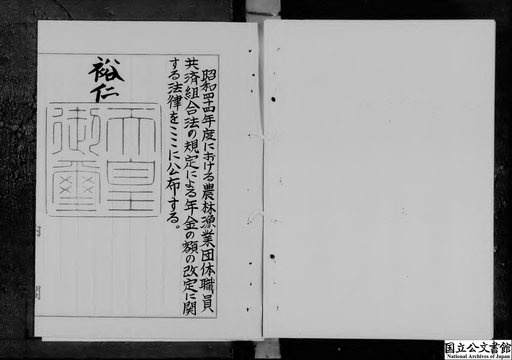 昭和四十四年度における農林漁業団体職員
共済組合法の規定による年金の額の改定に関
する法律をここに公布する。
裕仁
天皇
御璽
国立公文書館
National Archives of Japan